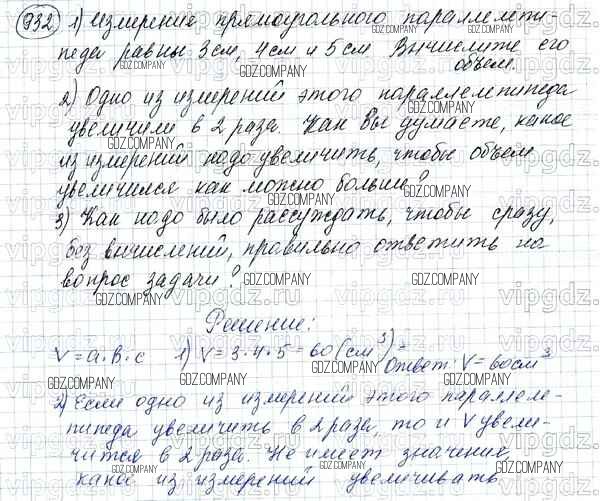 932 1) Измерение прямоугольного параллелепи-
педа равны 3см, 4см и 5см Вычислите его
объем.
2) Одно из измерений этого параллелепипеда
увеличили в 2 раза. Как Вы думаете, какое
из измерений надо увеличить, чтобы объем
увеличился как можно больше?
3) Как надо было рассуждать, чтобы сразу,
без вычислений, правильно ответить на
вопрос задачи?
Решение:
V = a·b·c 1) V = 3·4·5 = 60 (см³) =
Ответ: V = 60см³
2) Если одно из измерений этого параллеле-
пипеда увеличить в 2 раза, то и V увели-
чится в 2 раза. Не имеет значения,
какое из измерений увеличивать